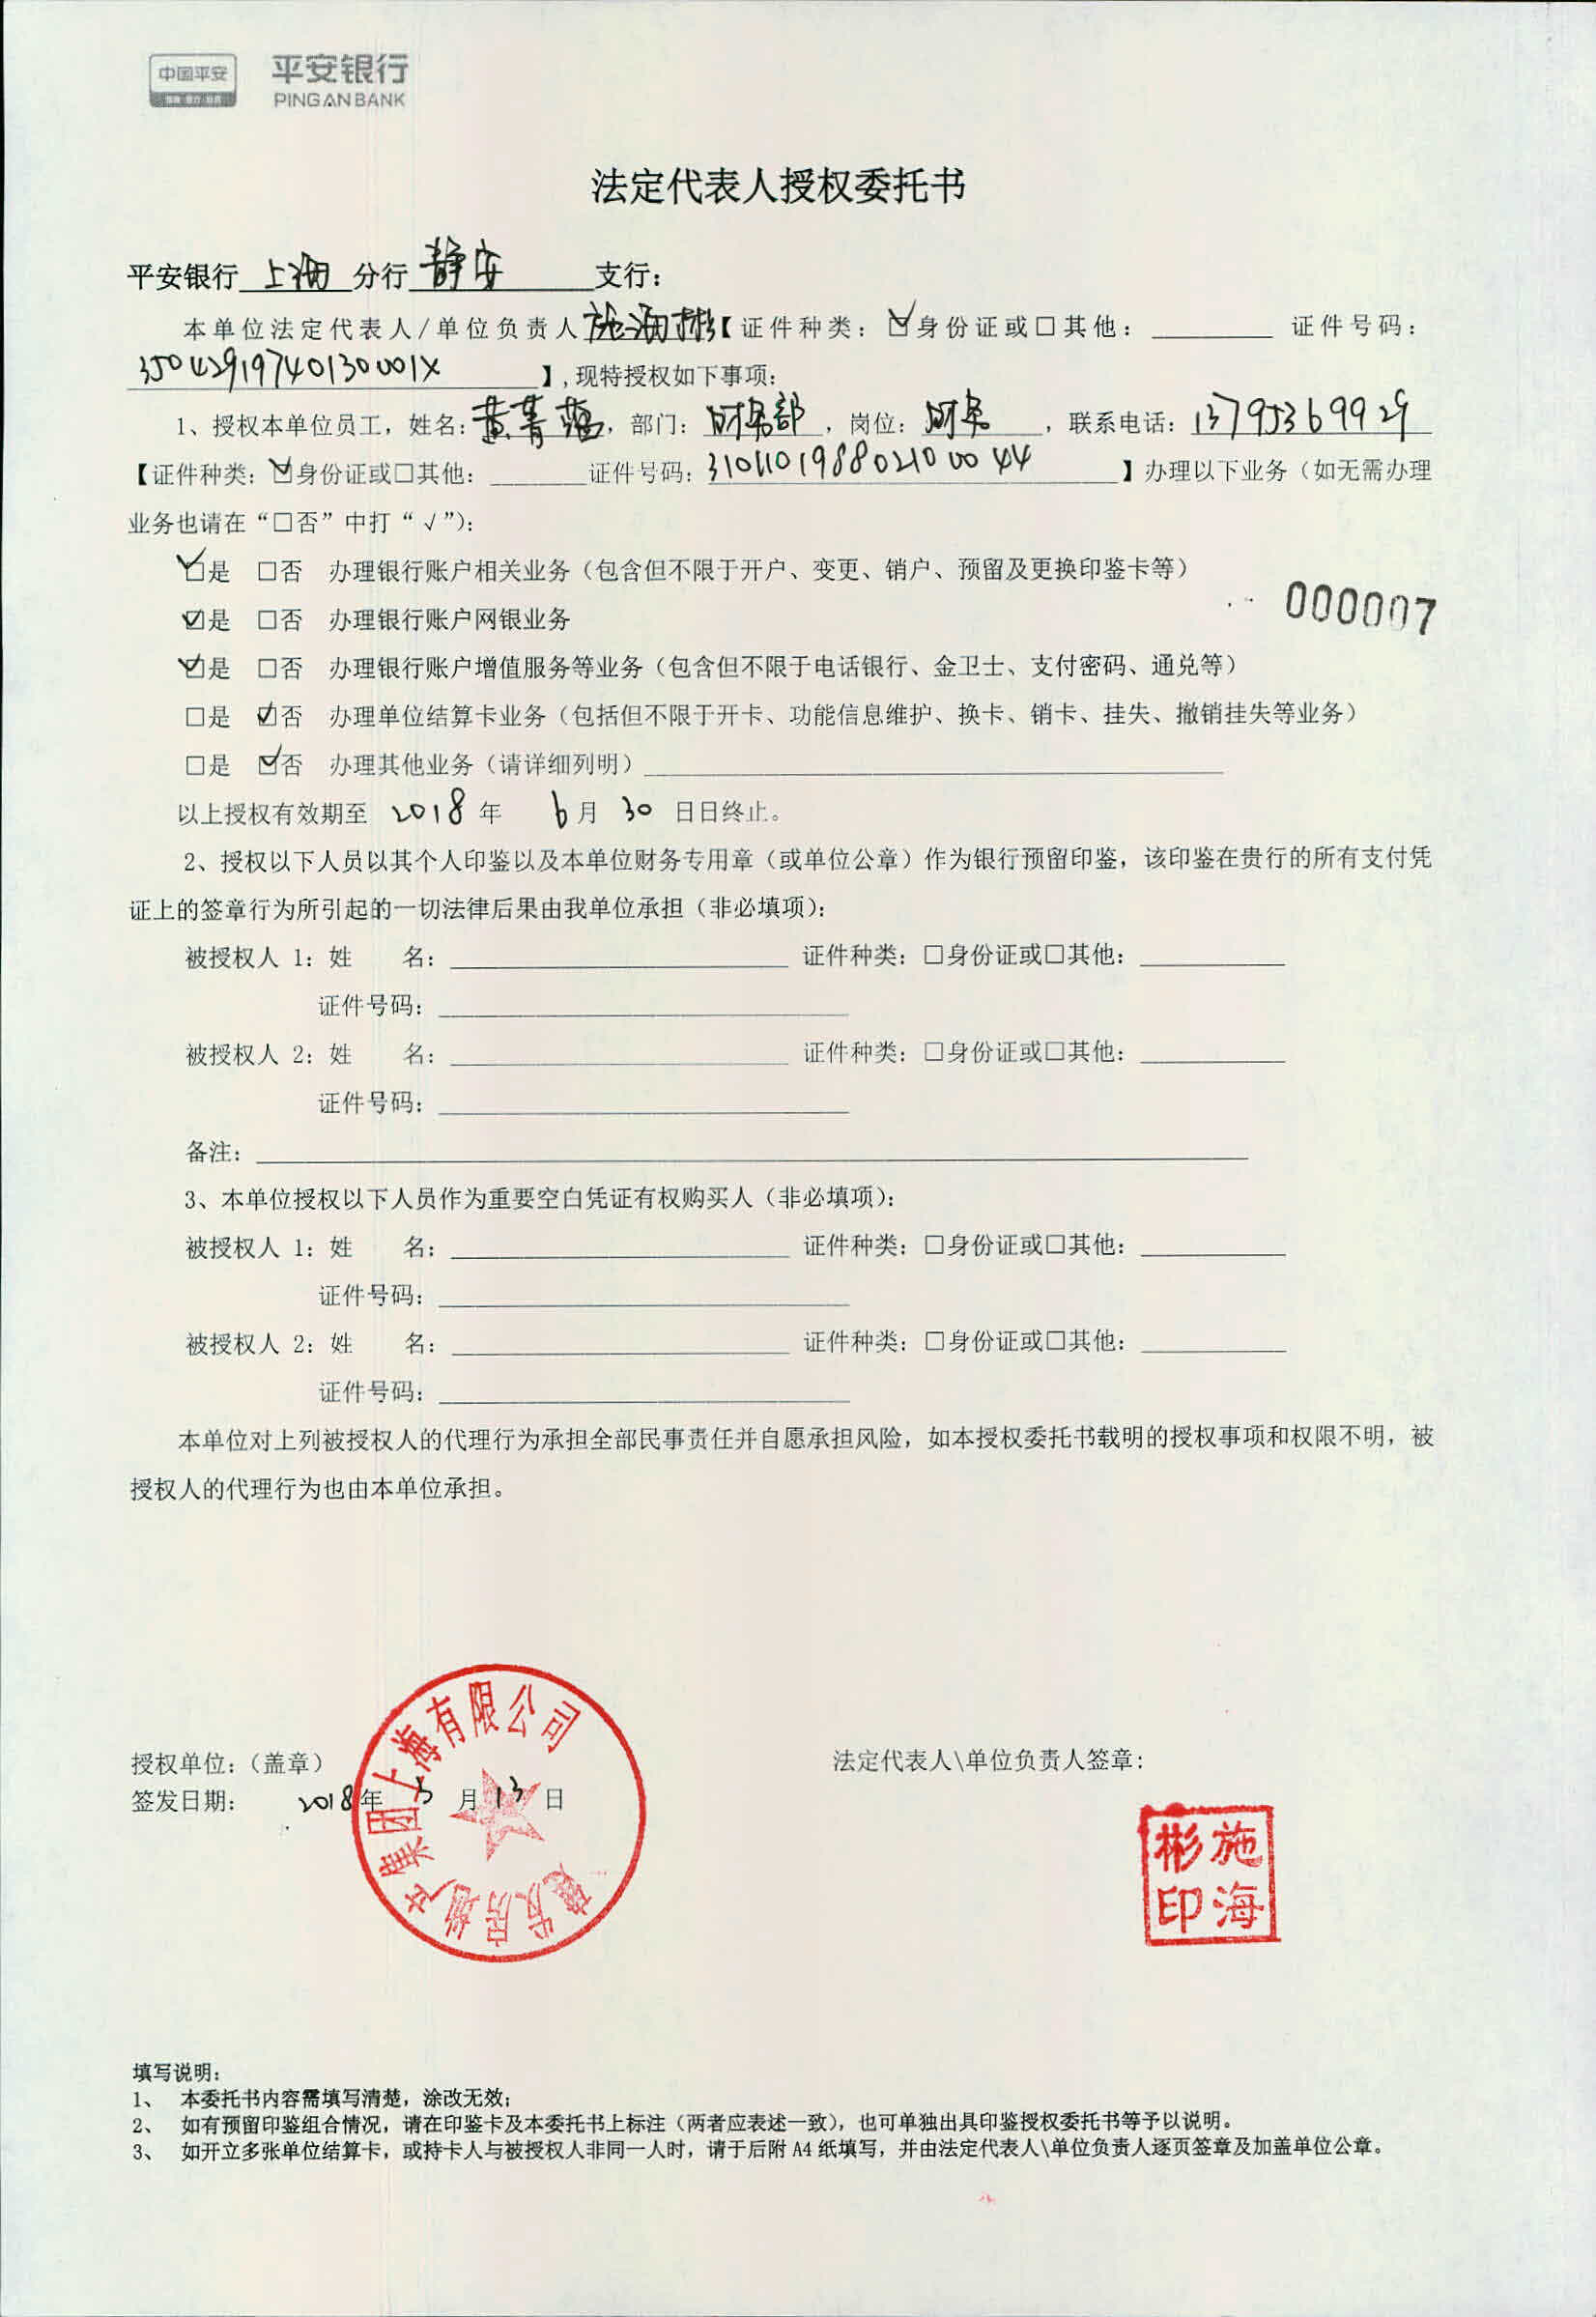 中国平安
平安银行
PING AN BANK
法定代表人授权委托书
平安银行 上海 分行 静安 支行：
本单位法定代表人/单位负责人 施海彬【证件种类：☑身份证或□其他：________ 证件号码：
35042919740130001X】,现特授权如下事项：
1、授权本单位员工，姓名：黄菁蕴，部门：财务部，岗位：财务，联系电话：13795369929
【证件种类：☑身份证或□其他：________证件号码：310110198802100044】办理以下业务（如无需办理
业务也请在“□否”中打“√”）：
☑是 □否 办理银行账户相关业务（包含但不限于开户、变更、销户、预留及更换印鉴卡等）
000007
☑是 □否 办理银行账户网银业务
☑是 □否 办理银行账户增值服务等业务（包含但不限于电话银行、金卫士、支付密码、通兑等）
□是 ☑否 办理单位结算卡业务（包括但不限于开卡、功能信息维护、换卡、销卡、挂失、撤销挂失等业务）
□是 ☑否 办理其他业务（请详细列明）________
以上授权有效期至 2018 年 6 月 30 日日终止。
2、授权以下人员以其个人印鉴以及本单位财务专用章（或单位公章）作为银行预留印鉴，该印鉴在贵行的所有支付凭
证上的签章行为所引起的一切法律后果由我单位承担（非必填项）：
被授权人 1：姓 名：________ 证件种类：□身份证或□其他：________
证件号码：________
被授权人 2：姓 名：________ 证件种类：□身份证或□其他：________
证件号码：________
备注：________
3、本单位授权以下人员作为重要空白凭证有权购买人（非必填项）：
被授权人 1：姓 名：________ 证件种类：□身份证或□其他：________
证件号码：________
被授权人 2：姓 名：________ 证件种类：□身份证或□其他：________
证件号码：________
本单位对上列被授权人的代理行为承担全部民事责任并自愿承担风险，如本授权委托书载明的授权事项和权限不明，被
授权人的代理行为也由本单位承担。
授权单位：（盖章）
法定代表人\单位负责人签章：
签发日期： 2018年 3 月 13 日
发房地产集团上海有限公司
施海彬印
填写说明：
1、 本委托书内容需填写清楚，涂改无效；
2、 如有预留印鉴组合情况，请在印鉴卡及本委托书上标注（两者应表述一致），也可单独出具印鉴授权委托书等予以说明。
3、 如开立多张单位结算卡，或持卡人与被授权人非同一人时，请于后附 A4 纸填写，并由法定代表人\单位负责人逐页签章及加盖单位公章。